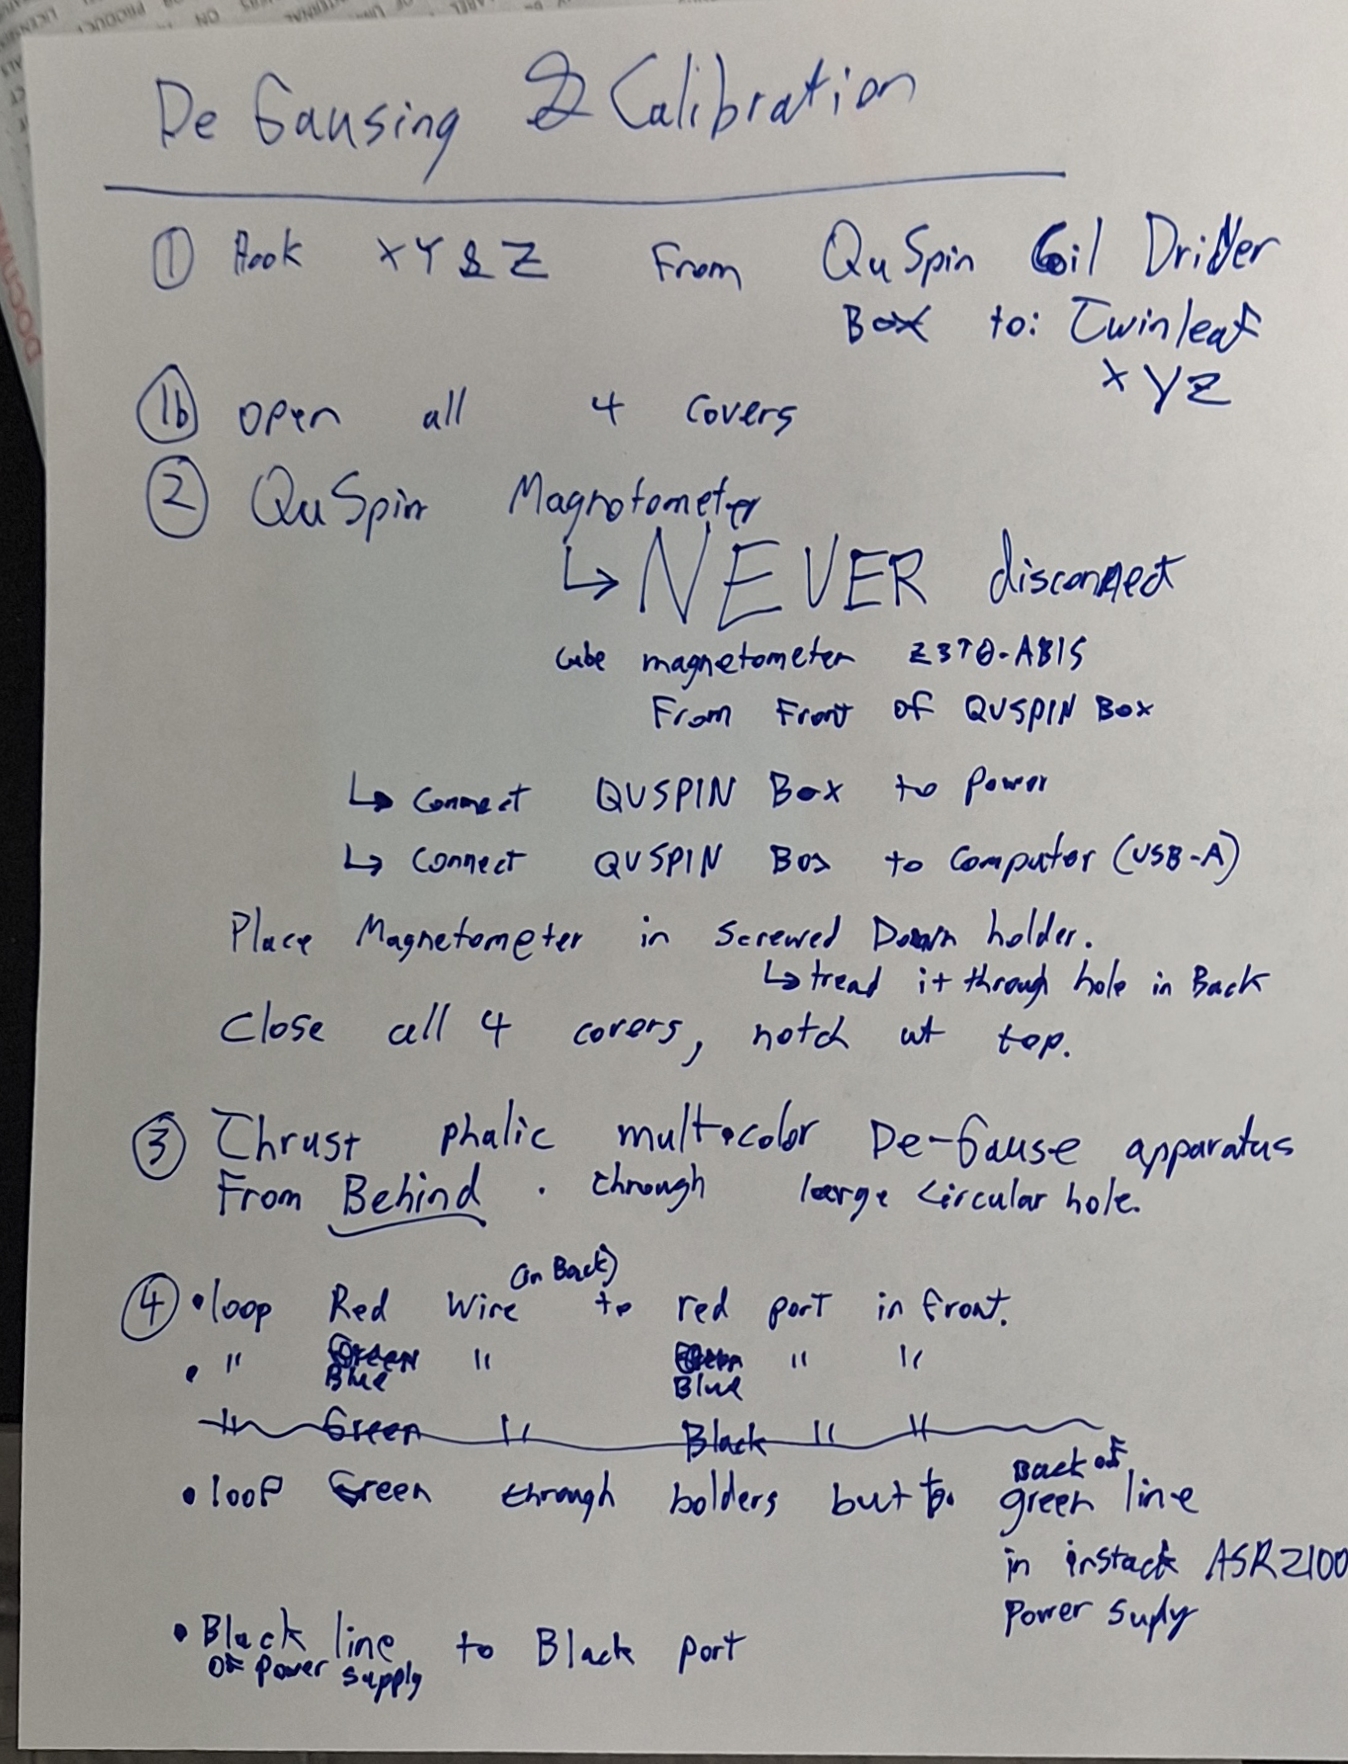 De Gausing & Calibration
① Hook XY & Z From QuSpin Coil Driver
Box to: Twinleaf
XYZ
1b open all 4 covers
② QuSpin Magnotometer
↳ NEVER disconnect
cube magnetometer
From Front of QUSPIN Box
↳ Connect QUSPIN Box to Power
↳ Connect QUSPIN Box to Computer (USB-A)
Place Magnetometer in Screwed Down holder.
↳ tread it through hole in Back
Close all 4 covers, notch at top.
③ Thrust phalic multicolor De-Gause apparatus
From Behind . through large circular hole.
(in Back)
④ • loop Red Wire to red port in front.
• " Green " Green " "
Blue Blue
" Green " Black " "
Back of
• loop Green through holders but to green line
in instack ASR2100
Power Suply
• Black line to Black port
of power supply